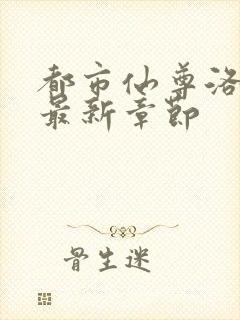 都市仙尊洛
最新章節
骨生迷